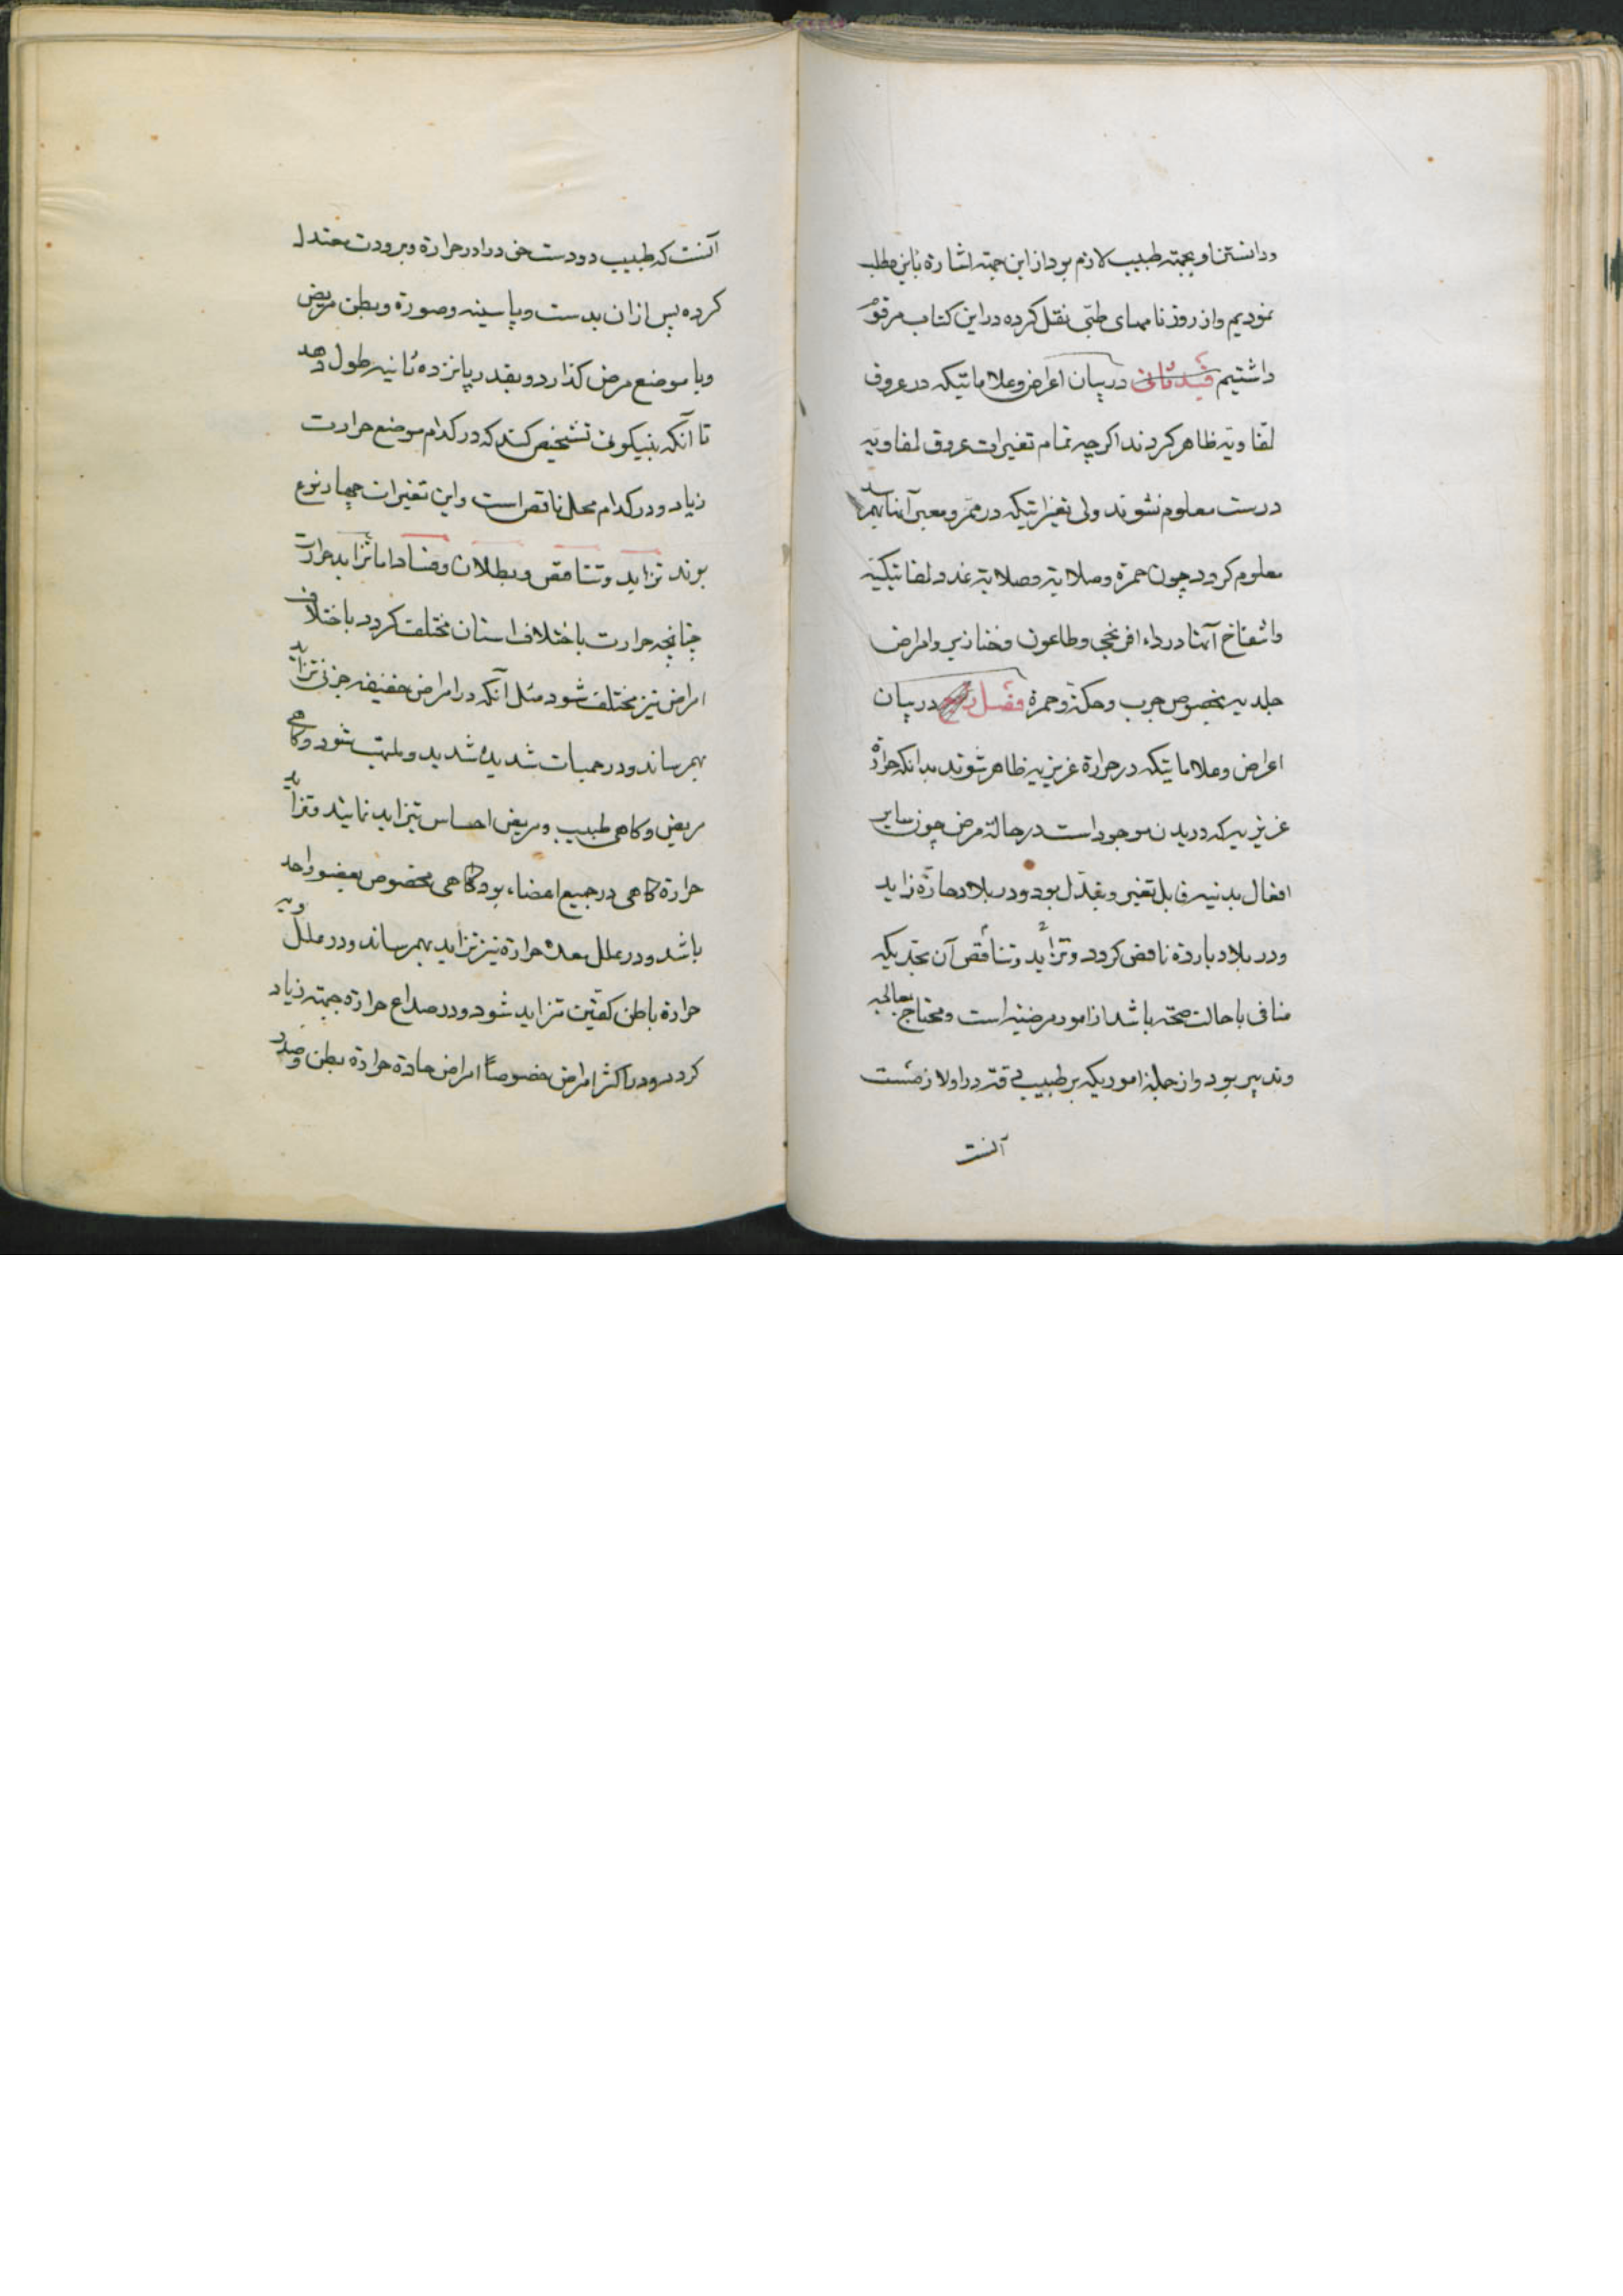 ودانستن او بجهته طبیب لازم بود از این جهته اشارة باین مطلب
نمودیم واز روزنامهای طبّی نقل کرده در این کتاب مرقوم
داشتیم قید ثانی در بیان اعراض وعلاماتیکه در عروق
لنفاویّه ظاهر کردند اکرچه تمام تغیرات عروق لنفاویّه
درست معلوم نشوند ولی تغیراتیکه در ممّر ومعبر آنها بهمرسد
معلوم کردد چون حمرة وصلابته وصلابته غدد لنفاتیکیّه
وانتفاخ آنها در داء افرنجی وطاعون وخنازیر وامراض
جلدیه بخصوص جرب وحکّة وحمرة فصل در بیان
اعراض وعلاماتیکه در حرارة غریزیه ظاهر شوند بدانکه حرارة
غریزیه که در بدن موجود است در حالة مرض چون سایر
افعال بدنیه قابل تغیر وتبدّل بود ودر بلاد حارّة زاید
ودر بلاد باردة ناقص کردد وتزاید وتناقص آن بحدیکه
منافی با حالت صحّته باشد از امور مرضیّه است ومحتاج بمعالجه
وتدبیر بود واز جمله اموریکه بر طبیب در اولا زمست
آنست
آنست که طبیب دو دست خود را در حرارة وبرودت معتدل
کرده پس از ان بدست وپا سینه وصورة وبطن مریض
ویا موضع مرض کذارد وبقدر پانزده ثانیه طول دهد
تا آنکه بنیکوئی تشخیص کند که در کدام موضع حرارت
زیاد ودر کدام محل ناقص است واین تغیرات چهار نوع
بوند تزاید وتناقص وبطلان وفساد اما تزاید حرارت
چنانچه حرارت باختلاف اسنان مختلف کردد باختلاف
امراض نیز مختلف شود مثل آنکه در امراض خفیفه جزئی تزاید
بهمرساند ودر حمیات شدیده شدید وملتهب شود وکاهی
مریض وکاهی طبیب ومریض احساس تزاید نمایند وتزاید
حرارة کاهی در جمیع اعضاء بود کاهی مخصوص بعضو واحد
باشد ودر علل معده حرارة نیز تزاید بهمرساند ودر علل ویه
حرارة باطن کفّین تزاید شود ودر صداع حرارة جبهته زیاد
کردد ودر اکثر امراض خصوصاً امراض حادة حرارة بطن وصدر